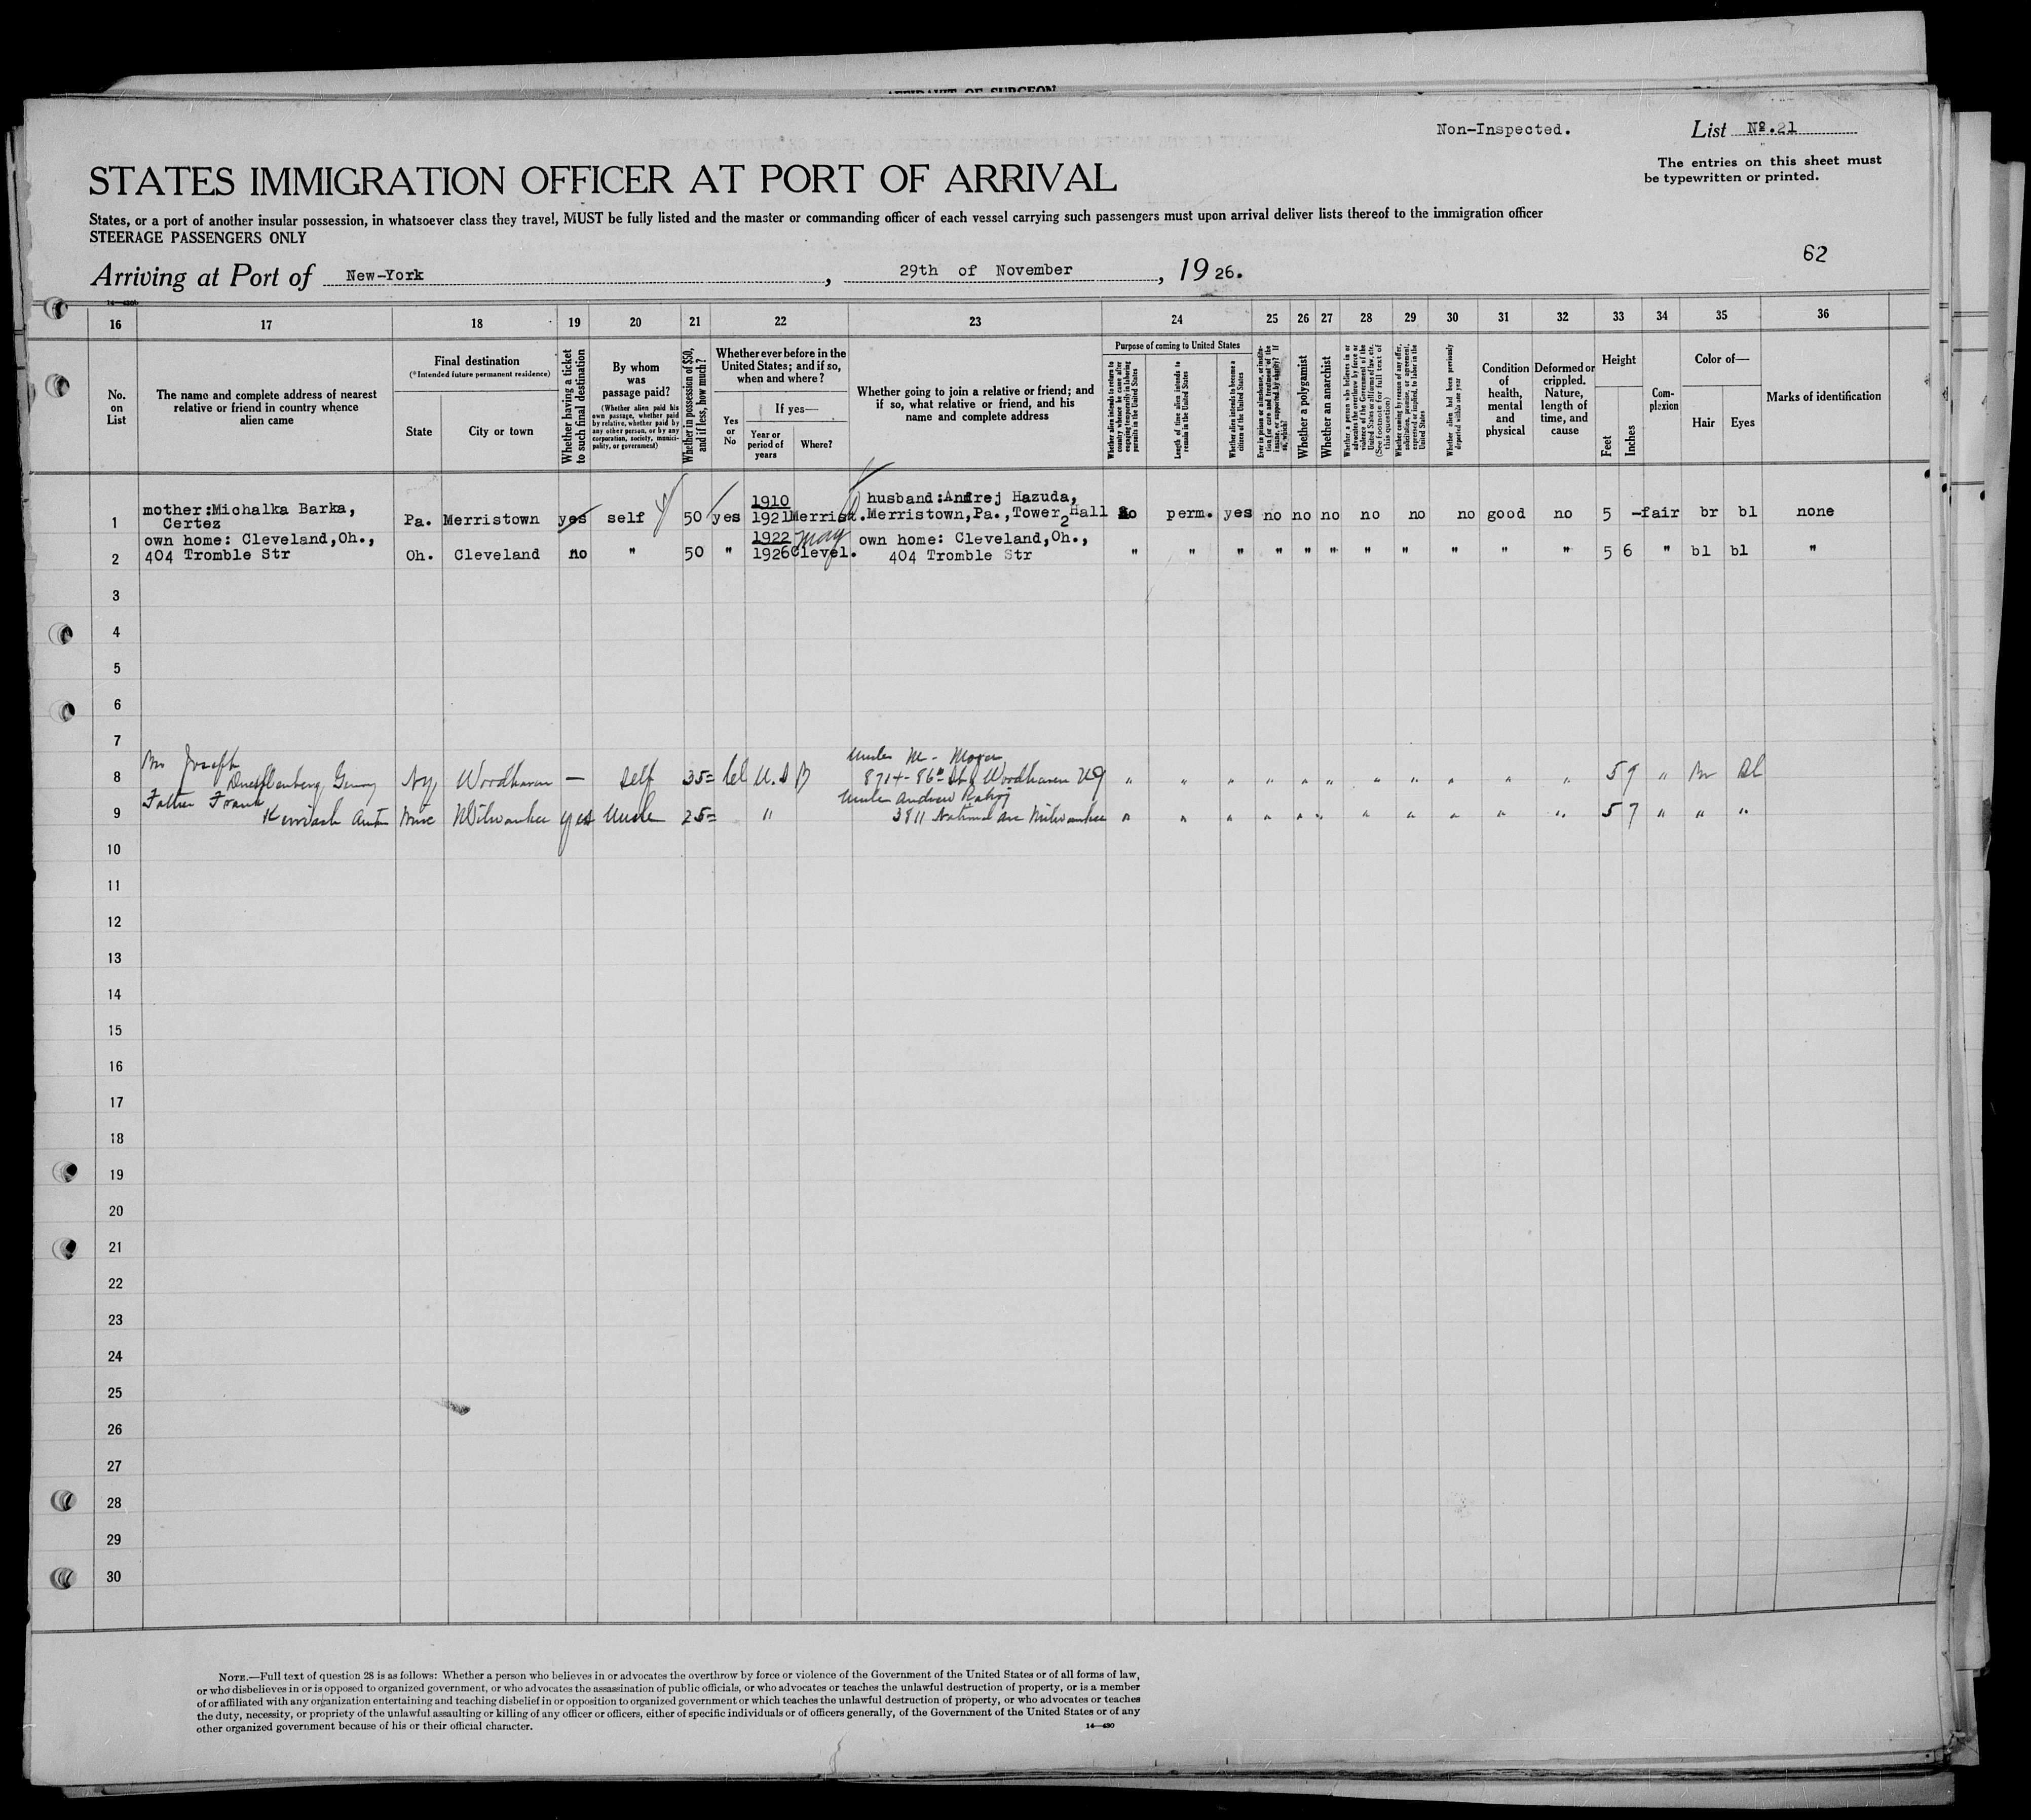 AFFIDAVIT OF SURGEON
Non-Inspected.
List Nº.21
The entries on this sheet must
be typewritten or printed.
STATES IMMIGRATION OFFICER AT PORT OF ARRIVAL
States, or a port of another insular possession, in whatsoever class they travel, MUST be fully listed and the master or commanding officer of each vessel carrying such passengers must upon arrival deliver lists thereof to the immigration officer
STEERAGE PASSENGERS ONLY
62
Arriving at Port of New-York, 29th of November, 1926.
16 17 18 19 20 21 22 23 24 25 26 27 28 29 30 31 32 33 34 35 36
No.
on
List
The name and complete address of nearest
relative or friend in country whence
alien came
Final destination
(*Intended future permanent residence)
State
City or town
Whether having a ticket
to such final destination
By whom
was
passage paid?
(Whether alien paid his
own passage, whether paid
by relative, whether paid by
any other person, or by any
corporation, society, munici-
pality, or government)
Whether in possession of $50,
and if less, how much?
Whether ever before in the
United States; and if so,
when and where?
Yes
or
No
If yes—
Year or
period of
years
Where?
Whether going to join a relative or friend; and
if so, what relative or friend, and his
name and complete address
Purpose of coming to United States
Whether alien intends to return to
country whence he came after
engaging temporarily in laboring
pursuits in the United States
Length of time alien intends to
remain in the United States
Whether alien intends to become a
citizen of the United States
Whether a polygamist
Whether an anarchist
Whether a person who believes in or
advocates the overthrow by force or
violence of the Government of the
United States or all forms of law, etc.
(See footnote for full text of
this question)
Whether coming by reason of any offer,
solicitation, promise, or agreement,
expressed or implied, to labor in the
United States
Whether alien had been previously
deported within one year
Condition
of
health,
mental
and
physical
Deformed or
crippled.
Nature,
length of
time, and
cause
Height
Feet
Inches
Com-
plexion
Color of—
Hair
Eyes
Marks of identification
1 mother:Michalka Barka, Certez Pa. Merristown yes self 50 yes 1910 1921 husband:Andrej Hazuda, Merristown,Pa.,Tower Hall 2 no perm. yes no no no no no no good no 5 - fair br bl none
2 own home: Cleveland,Oh., 404 Tromble Str Oh. Cleveland no " 50 " 1922 1926 May Clevel. own home: Cleveland,Oh., 404 Tromble Str " " " " " " " " " " " 5 6 " bl bl "
3
4
5
6
7
8 Joseph Ny Woodhaven — self 35= U.S Uncle M. Moyer 8714-86th St Woodhaven " " " " " " " " " " " 5 9 " Br Bl
9 Father Frank Milwaukee yes Uncle 25= " Uncle Andrew 3811 National Ave Milwaukee " " " " " " " " " " " 5 7 " " "
10
11
12
13
14
15
16
17
18
19
20
21
22
23
24
25
26
27
28
29
30
NOTE.—Full text of question 28 is as follows: Whether a person who believes in or advocates the overthrow by force or violence of the Government of the United States or of all forms of law,
or who disbelieves in or is opposed to organized government, or who advocates the assassination of public officials, or who advocates or teaches the unlawful destruction of property, or is a member
of or affiliated with any organization entertaining and teaching disbelief in or opposition to organized government or which teaches the unlawful destruction of property, or who advocates or teaches
the duty, necessity, or propriety of the unlawful assaulting or killing of any officer or officers, either of specific individuals or of officers generally, of the Government of the United States or of any
other organized government because of his or their official character.
14—430